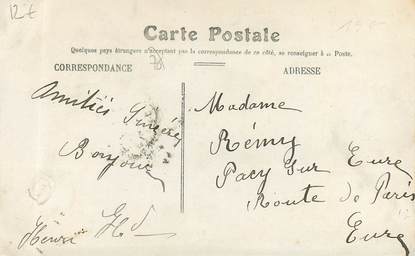 12€
Carte Postale
Quelques pays étrangers n'acceptant pas la correspondance de ce côté, se renseigner à la Poste.
CORRESPONDANCE
ADRESSE
Amitiés
Bonjour
Henri
Madame
Rémy
Pacy sur Eure
Route de Paris
Eure